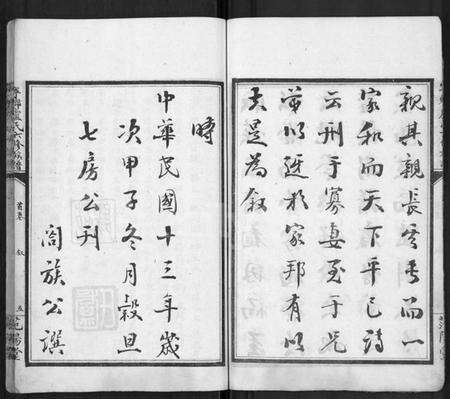 親其親長其長而一
家和而天下平已詩
云刑于寡妻至于兄
弟以迓于家邦有以
夫是為叙
時
中華民國十三年歲
次甲子冬月穀旦
七房公刊
闔族公撰
首卷
叙
五
范陽堂